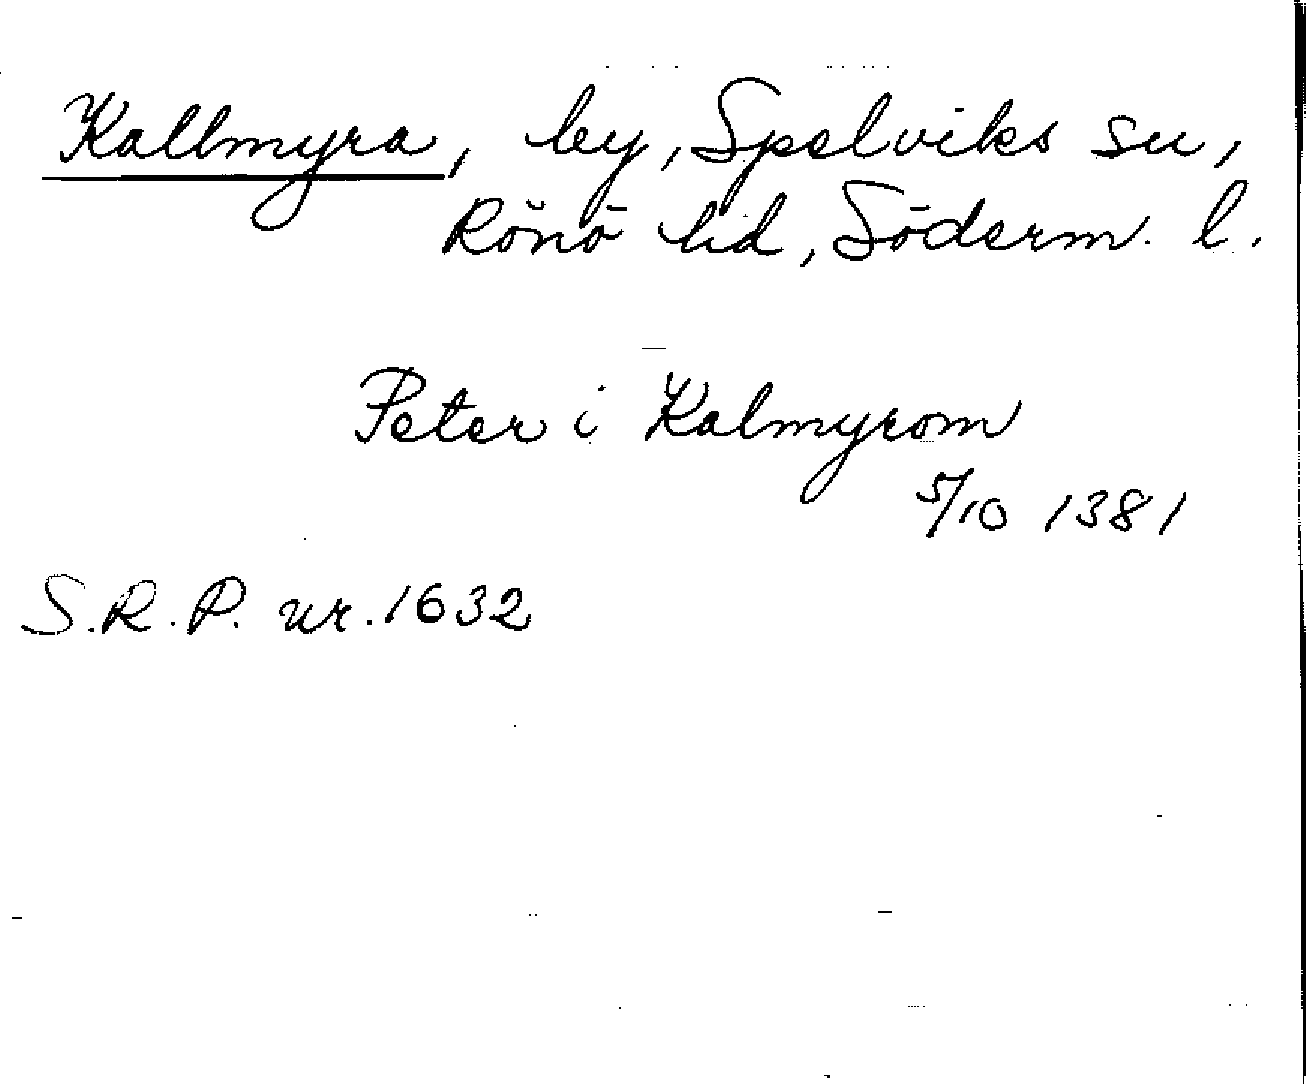 Kallmyra, by, Spelviks sn,
Rönö hd, Söderm. l.
Peter i Kalmyrom
5/10 1381
S.R.P. nr. 1632